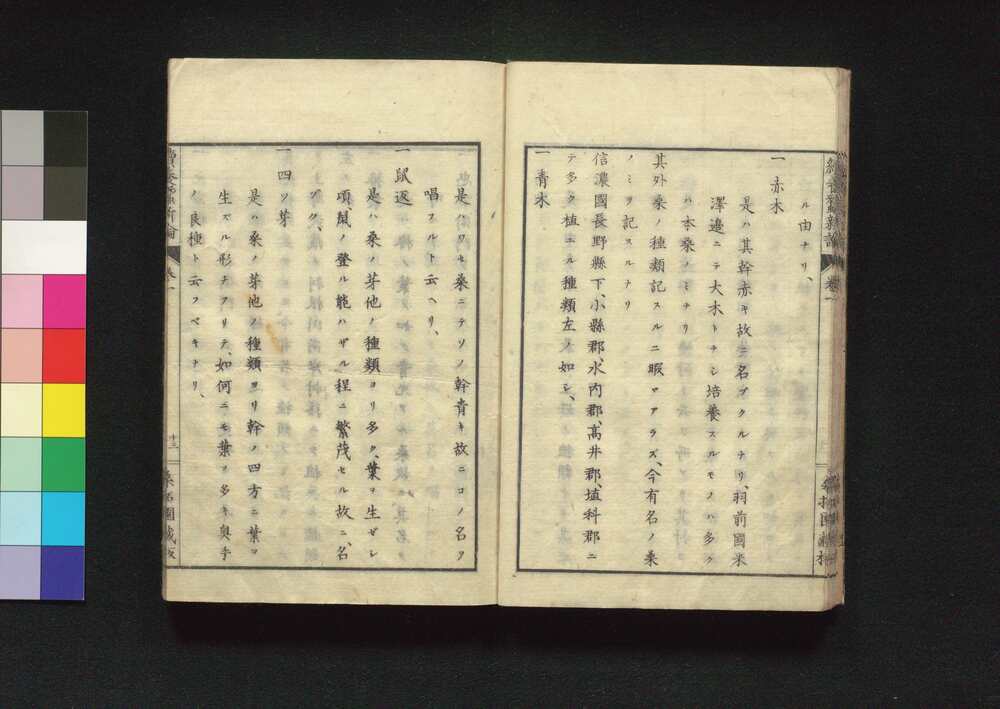 ル由ナリ、
一 赤木
是ハ其幹赤キ故ニ名ヅクルナリ、羽前國米
澤邉ニテ大木トナシ培養スルモノハ多ク
ハ本桑ノミナリ
其外桑ノ種類記スルニ暇マアラズ、今有名ノ桑
ノミヲ記スルナリ
信濃國長野縣下、小縣郡、水内郡、高井郡、埴科郡ニ
テ多ク植エル種類左ノ如シ、
一 青木
是ハワセ桑ニテソノ幹青キ故ニコノ名ヲ
唱フルト云ヘリ、
一 鼠返
是ハ桑ノ芽他ノ種類ヨリ多ク、葉ヲ生ゼシ
項、鼠ノ登ル能ハザル程ニ繁茂セル故ニ、名
ヅク、
一 四ツ芽
是ハ桑ノ芽他ノ種類ヨリ幹ノ四方ニ葉ヲ
生ズル形チアリテ、如何ニモ葉ヲ多キ奥手
ノ良種ト云フベキナリ、
卷一
十三